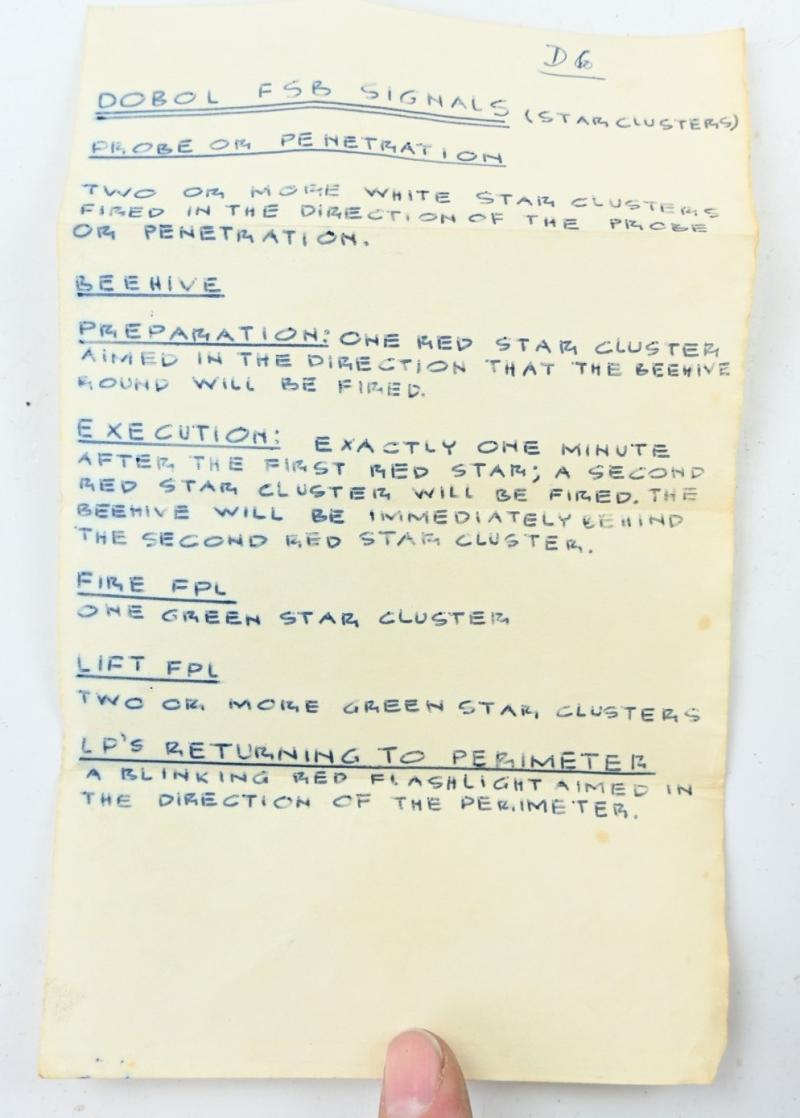 D6
DOBOL FSB SIGNALS (STAR CLUSTERS)
PROBE OR PENETRATION
TWO OR MORE WHITE STAR CLUSTERS
FIRED IN THE DIRECTION OF THE PROBE
OR PENETRATION.
BEEHIVE
PREPARATION: ONE RED STAR CLUSTER
AIMED IN THE DIRECTION THAT THE BEEHIVE
ROUND WILL BE FIRED.
EXECUTION: EXACTLY ONE MINUTE
AFTER THE FIRST RED STAR; A SECOND
RED STAR CLUSTER WILL BE FIRED. THE
BEEHIVE WILL BE IMMEDIATELY BEHIND
THE SECOND RED STAR CLUSTER.
FIRE FPL
ONE GREEN STAR CLUSTER
LIFT FPL
TWO OR MORE GREEN STAR CLUSTERS
LP'S RETURNING TO PERIMETER
A BLINKING RED FLASHLIGHT AIMED IN
THE DIRECTION OF THE PERIMETER.